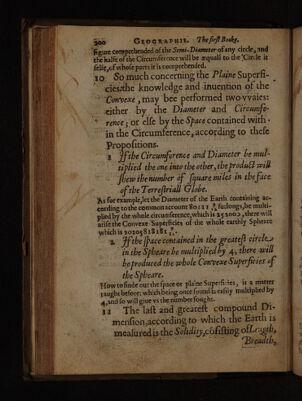 200 GEOGRAPHIE. The first Booke.
figure comprehended of the Semi-Diameter of any circle, and
the halfe of the Circumference will be æquall to the Circle it
selfe, of whose parts it is comprehended.
10 So much concerning the Plaine Superfi-
cies: the knowledge and inuention of the
Convexe, may bee performed two vvaies:
either by the Diameter and Circumfe-
rence; or else by the Space contained with-
in the Circumference, according to these
Propositions.
1 If the Circumference and Diameter be mul-
tiplied the one into the other, the product will
shew the number of square miles in the face
of the Terrestriall Globe.
As for example, let the Diameter of the Earth containing ac-
cording to the common account 8011 furlongs, be multi-
plied by the whole circumference, which is 25200, there will
arise the Convexe Superficies of the whole earthly Spheare
which is
2. If the space contained in the greatest circle
in the Spheare be multiplied by 4, there will
be produced the whole Convexe Superficies of
the Spheare.
How to finde out the space or plaine Superficies, is a matter
taught before: which being once found is easily multiplied by
4, and so will give vs the number sought.
11 The last and greatest compound Di-
mension, according to which the Earth is
measured is the Solidity, cōsisting of Length,
Breadth,